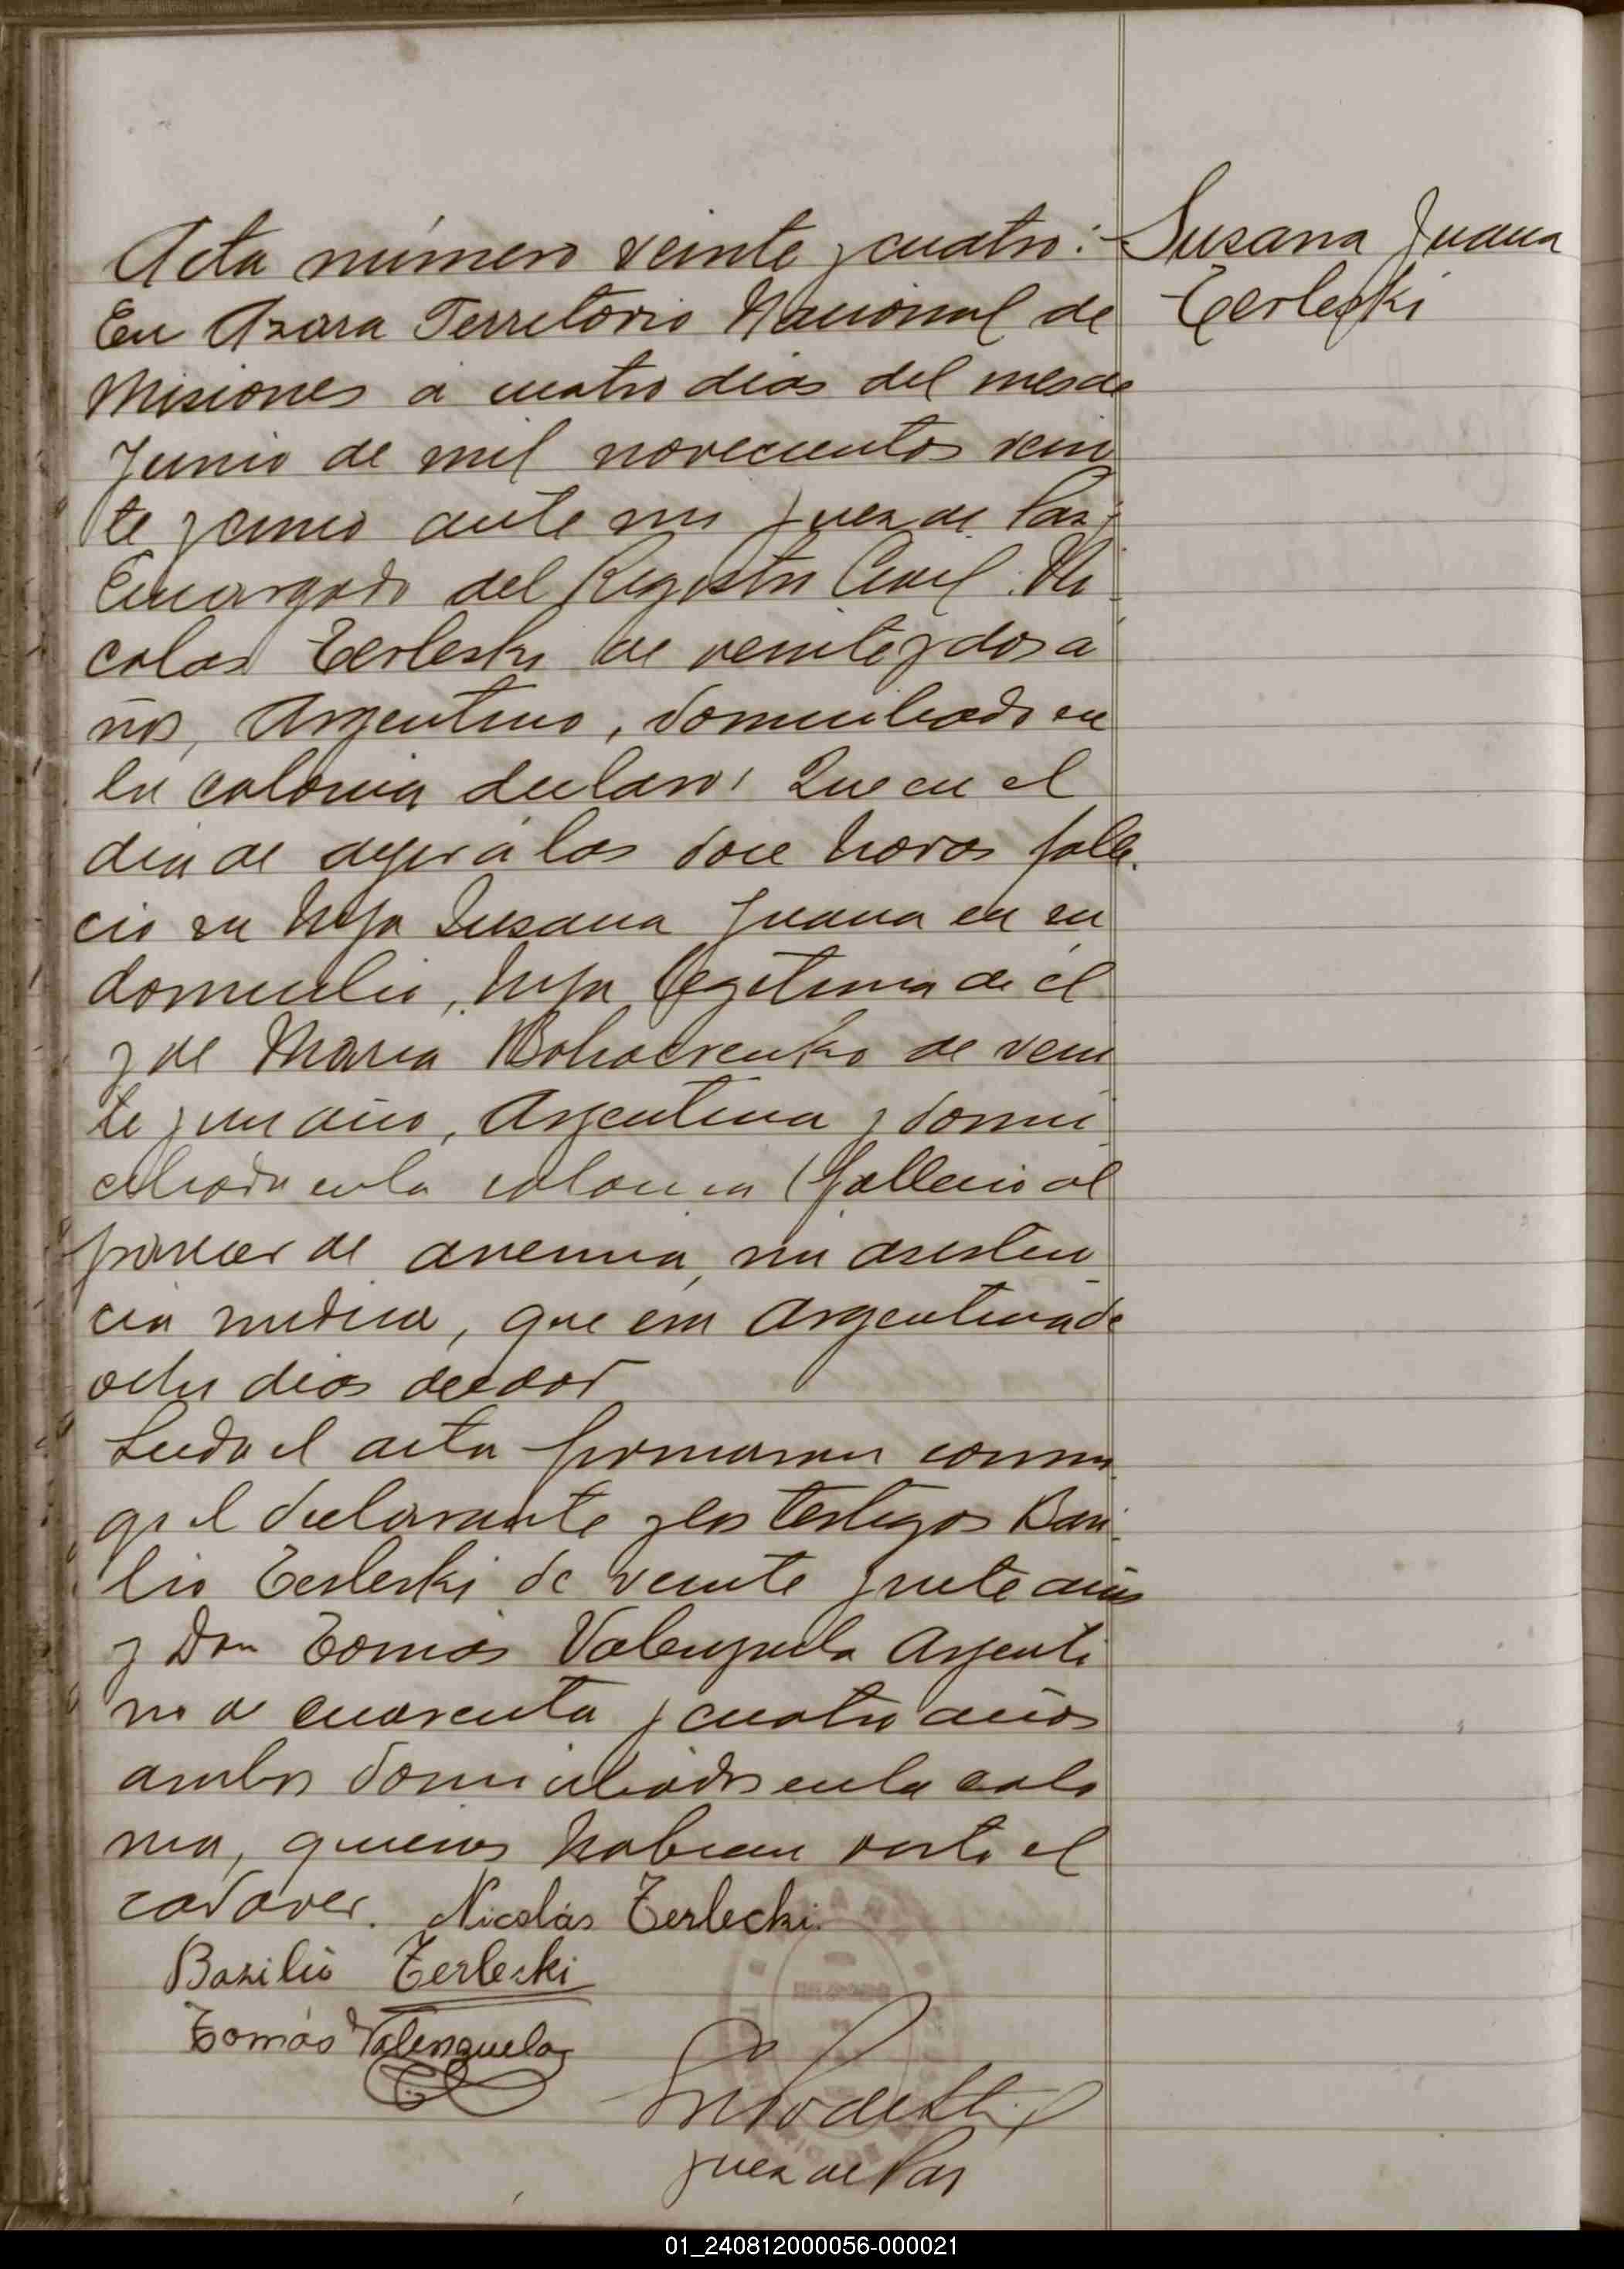 Acta número veinte y cuatro:
Susana Juana
Terleski
En Azara Territorio Nacional de
Misiones a cuatro dias del mes de
Junio de mil novecientos vein
te y cinco ante mi Juez de Paz y
Encargado del Registro Civil: Ni
colas Terleski de veinte y dos a
ños, Argentino, domiciliado en
la colonia declaró: Que en el
dia de ayer a las doce horas falle
cio su hija Susana Juana en su
domicilio, hija legitima de el
y de Maria de vein
te y un años, Argentina y domi
ciliada en la colonia (fallecio al
parecer de anemia, sin asisten
cia medica, que era Argentina de
ocho dias de edad
Leida el acta firmaron conmi
go el declarante y los testigos Basi
lio Terleski de veinte y siete años
y Don Tomás Valenzuela Argenti
no de cuarenta y cuatro años
ambos domiciliados en la colo
nia, quienes habian visto el
cadaver. Nicolás Terlecki
Basilio Terleski
Tomás Valenzuela
Juez de Paz
01_240812000056-000021